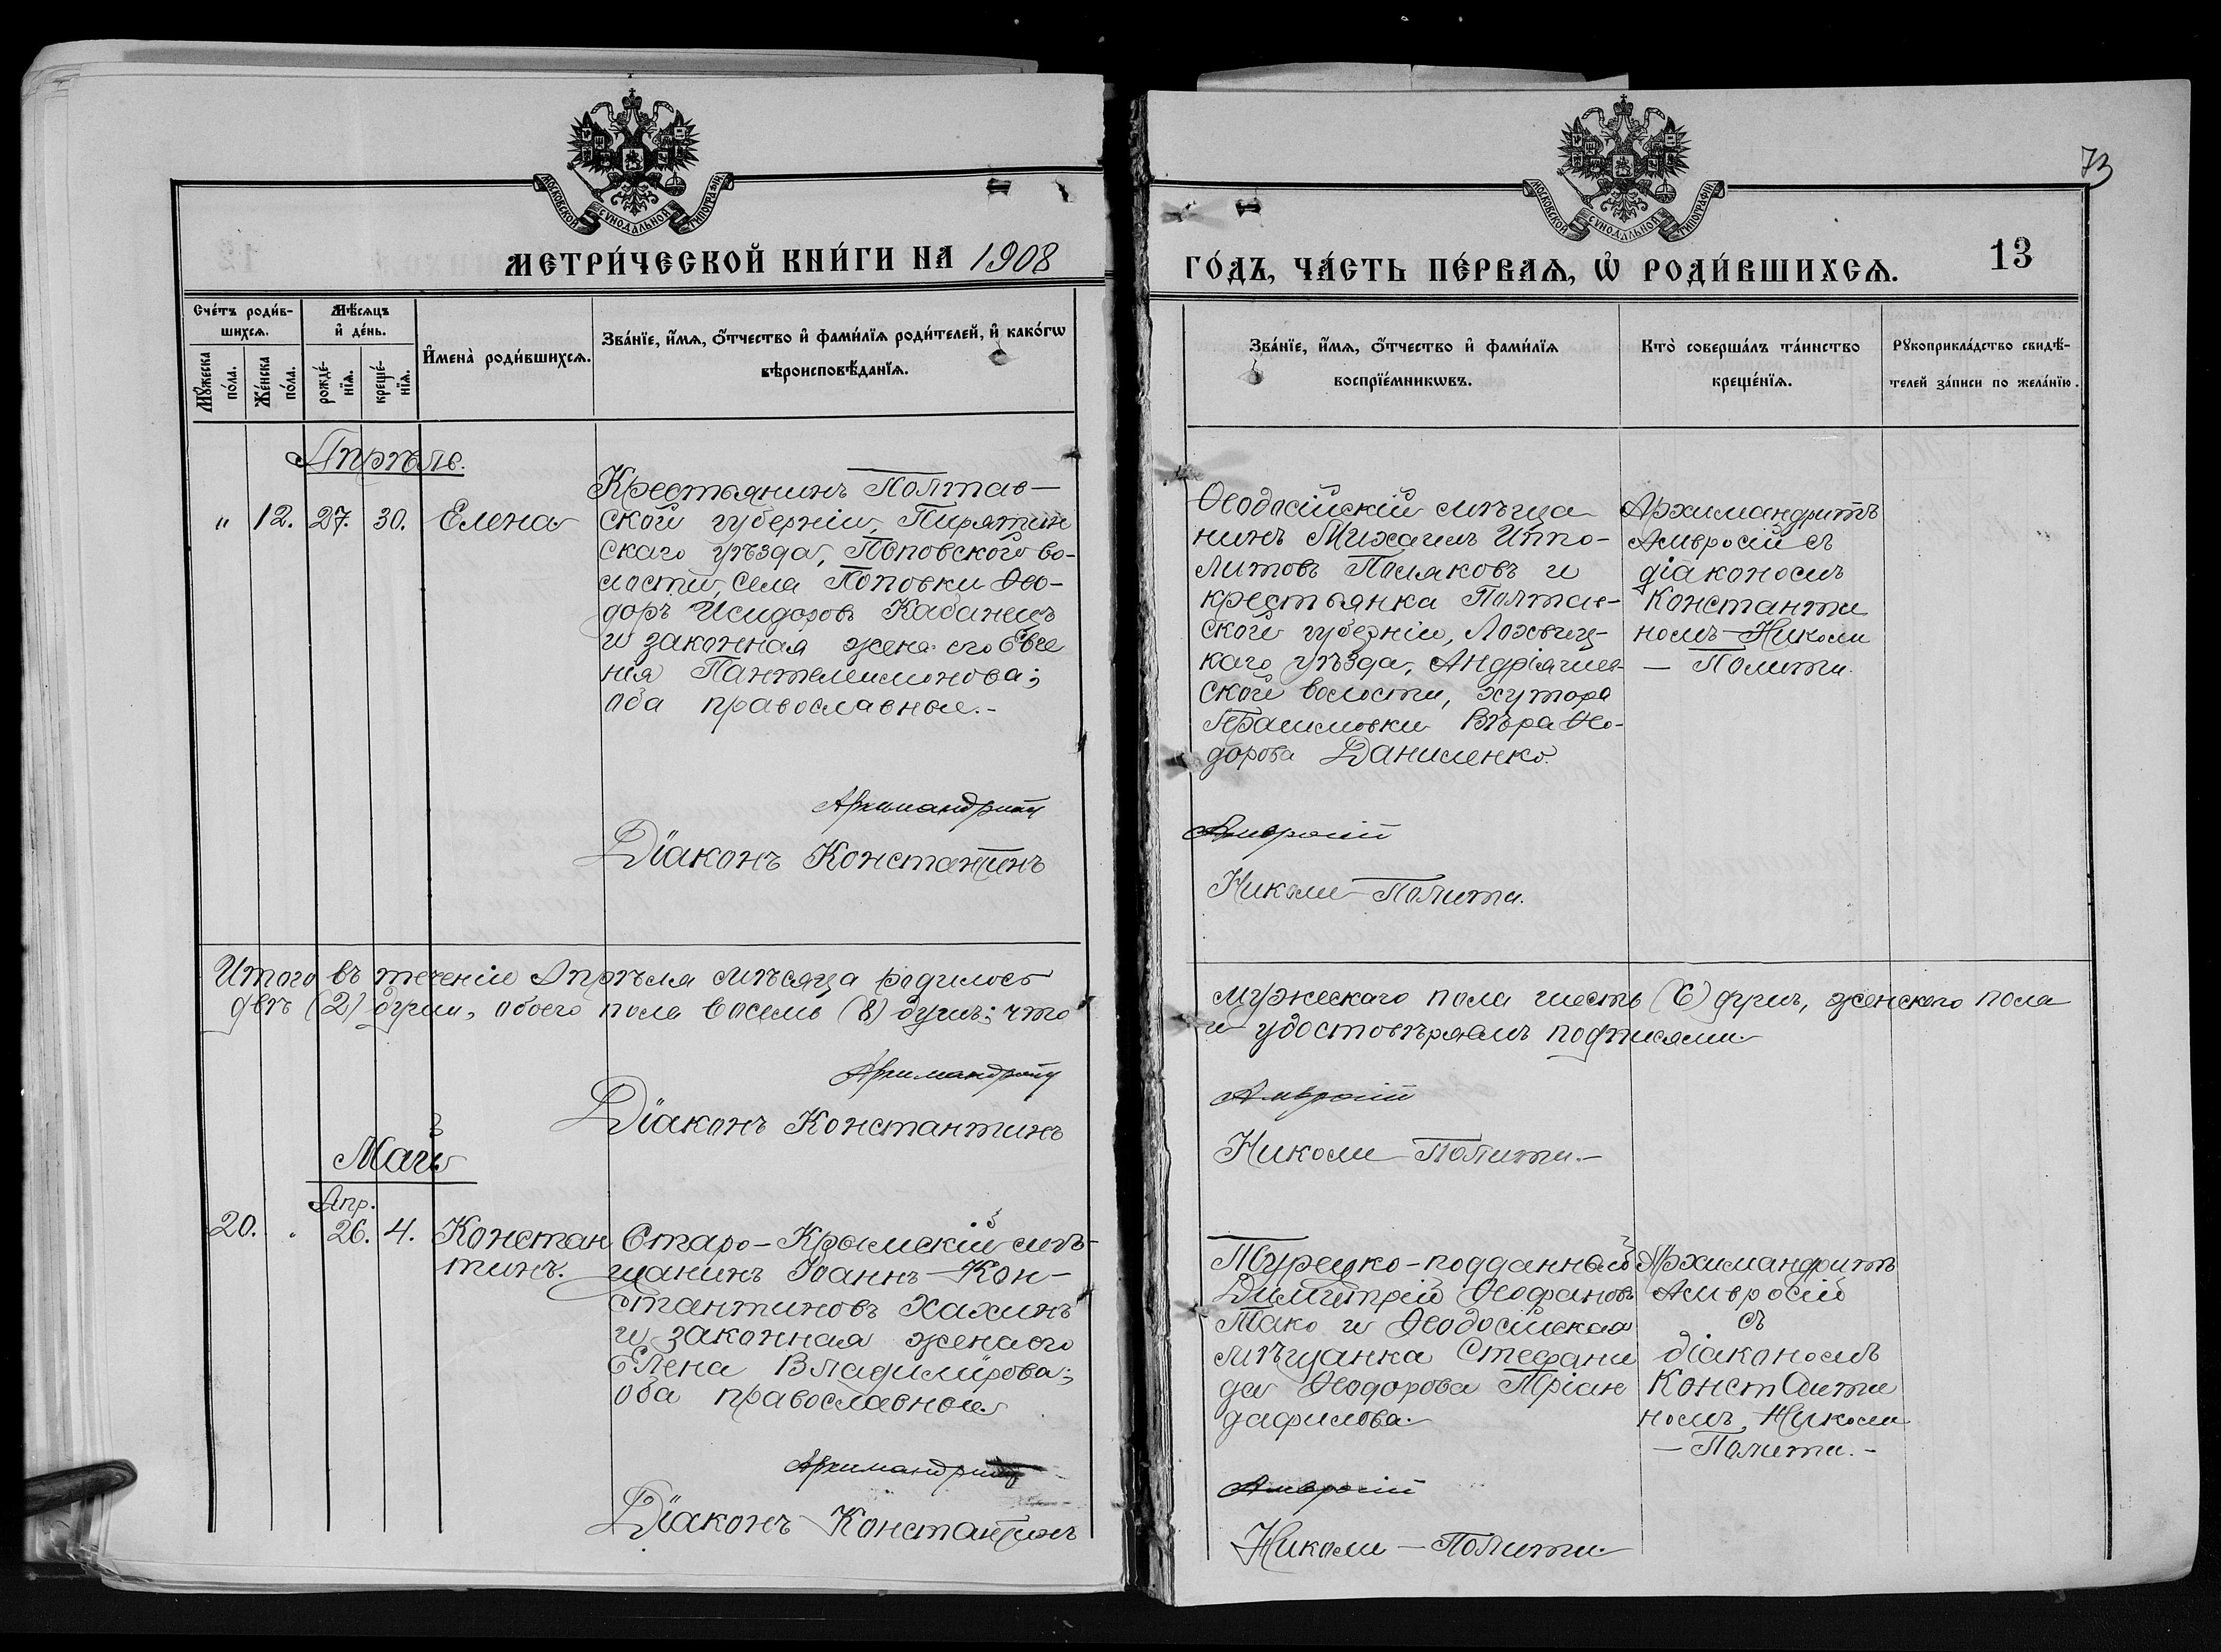 МОСКОВСКОЙ СУНОДАЛЬНОЙ ТИПОГРАФІИ
МЕТРИ́ЧЕСКОЙ КНИ́ГИ НА 1908
Сче́тъ роди́в-
шихсѧ.
Мꙋ́жеска
по́ла.
Же́нска
по́ла.
Мѣ́сѧцъ
и҆ де́нь.
рожде́-
нїѧ.
креще́-
нїѧ.
И҆мена̀ роди́вшихсѧ.
Зва́нїе, и҆́мѧ, ѻ҆́тчество и҆ фами́лїѧ роди́телей, и҆ како́гѡ
вѣроисповѣ́данїѧ.
Апрѣль.
" 12. 27. 30. Елена
Крестьянинъ Полтав-
ской губерніи, Пирятин
скаго уѣзда, Поповской во-
лости, села Поповки Ѳео-
доръ Исидоровъ Кабанецъ
и законная жена его Евге
нія Пантелеимонова;
оба православные.-
Архимандритъ
Діаконъ Константинъ
Итого въ теченіи Апрѣля мѣсяца родилось
двѣ (2) души, обоего пола восемь (8) душъ; что
Архимандритъ
Діаконъ Константинъ
Май
Апр.
20. 26. 4. Констан
тинъ.
Старо-Крымскій мѣ-
щанинъ Іоаннъ Кон-
стантиновъ Хахинъ
и законная жена его
Елена Владимірова;
оба православные.
Архимандритъ
Діаконъ Константинъ
МОСКОВСКОЙ СУНОДАЛЬНОЙ ТИПОГРАФІИ
73
ГО́ДЪ, ЧА́СТЬ ПЕ́РВАѦ, Ѡ҆ РОДИ́ВШИХСѦ.
13
Зва́нїе, и҆́мѧ, ѻ҆́тчество и҆ фами́лїѧ
воспрїе́мникѡвъ.
Кто̀ соверша́лъ та́инство
креще́нїѧ.
Рꙋкоприкла́дство свидѣ́-
телей за́писи по жела́нїю.
Ѳеодосійскій мѣща
нинъ Михаилъ Иппо-
литовъ Поляковъ и
крестьянка Полтав-
ской губерніи, Лохвиц-
каго уѣзда, Андріяшев
ской волости, хутора
Вѣра Ѳео-
дорова Даниленко.
Архимандритъ
Амвросій съ
діакономъ
Константи
номъ Николи
- Полити.
Амвросій
Николи-Полити.
мужескаго пола шесть (6) душъ, женскаго пола
и удостовѣряемъ подписями.
Амвросій
Николи-Полити.-
Турецко-подданный
Димитрій Ѳеофановъ
Тако и Ѳеодосійская
мѣщанка Стефани
да Ѳеодорова Тріан
дафилова.
Архимандритъ
Амвросій
съ
діакономъ
Константи
номъ Николи
- Полити.-
Амвросій
Николи-Полити.